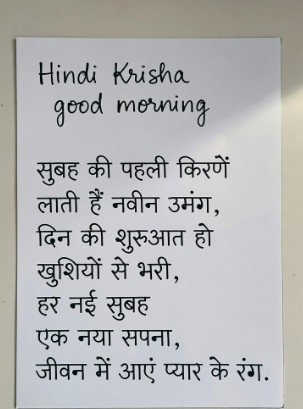 Hindi Krisha
good morning
सुबह की पहली किरणें
लाती हैं नवीन उमंग,
दिन की शुरुआत हो
खुशियों से भरी,
हर नई सुबह
एक नया सपना,
जीवन में आएं प्यार के रंग.